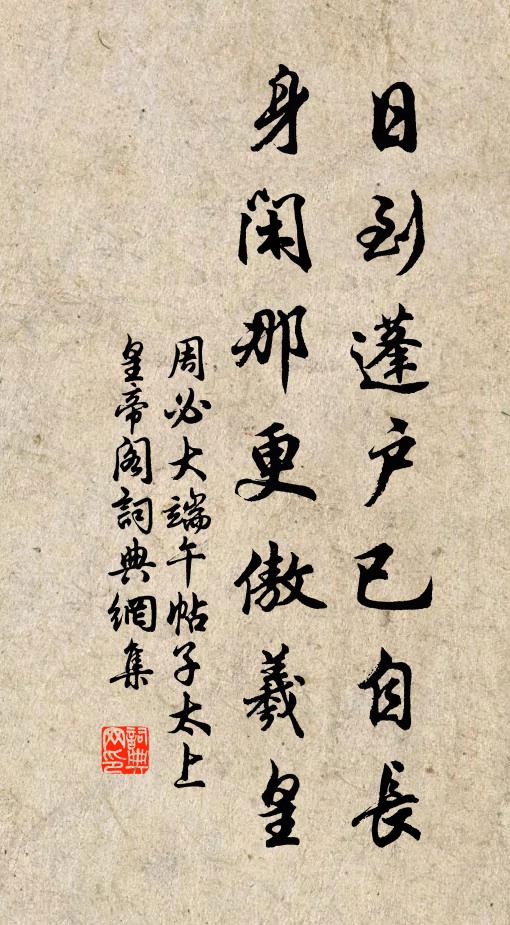 日到蓬户已自長
身閑那更傲羲皇
周必大端午帖子太上
皇帝阁詞典網集
詞典網印